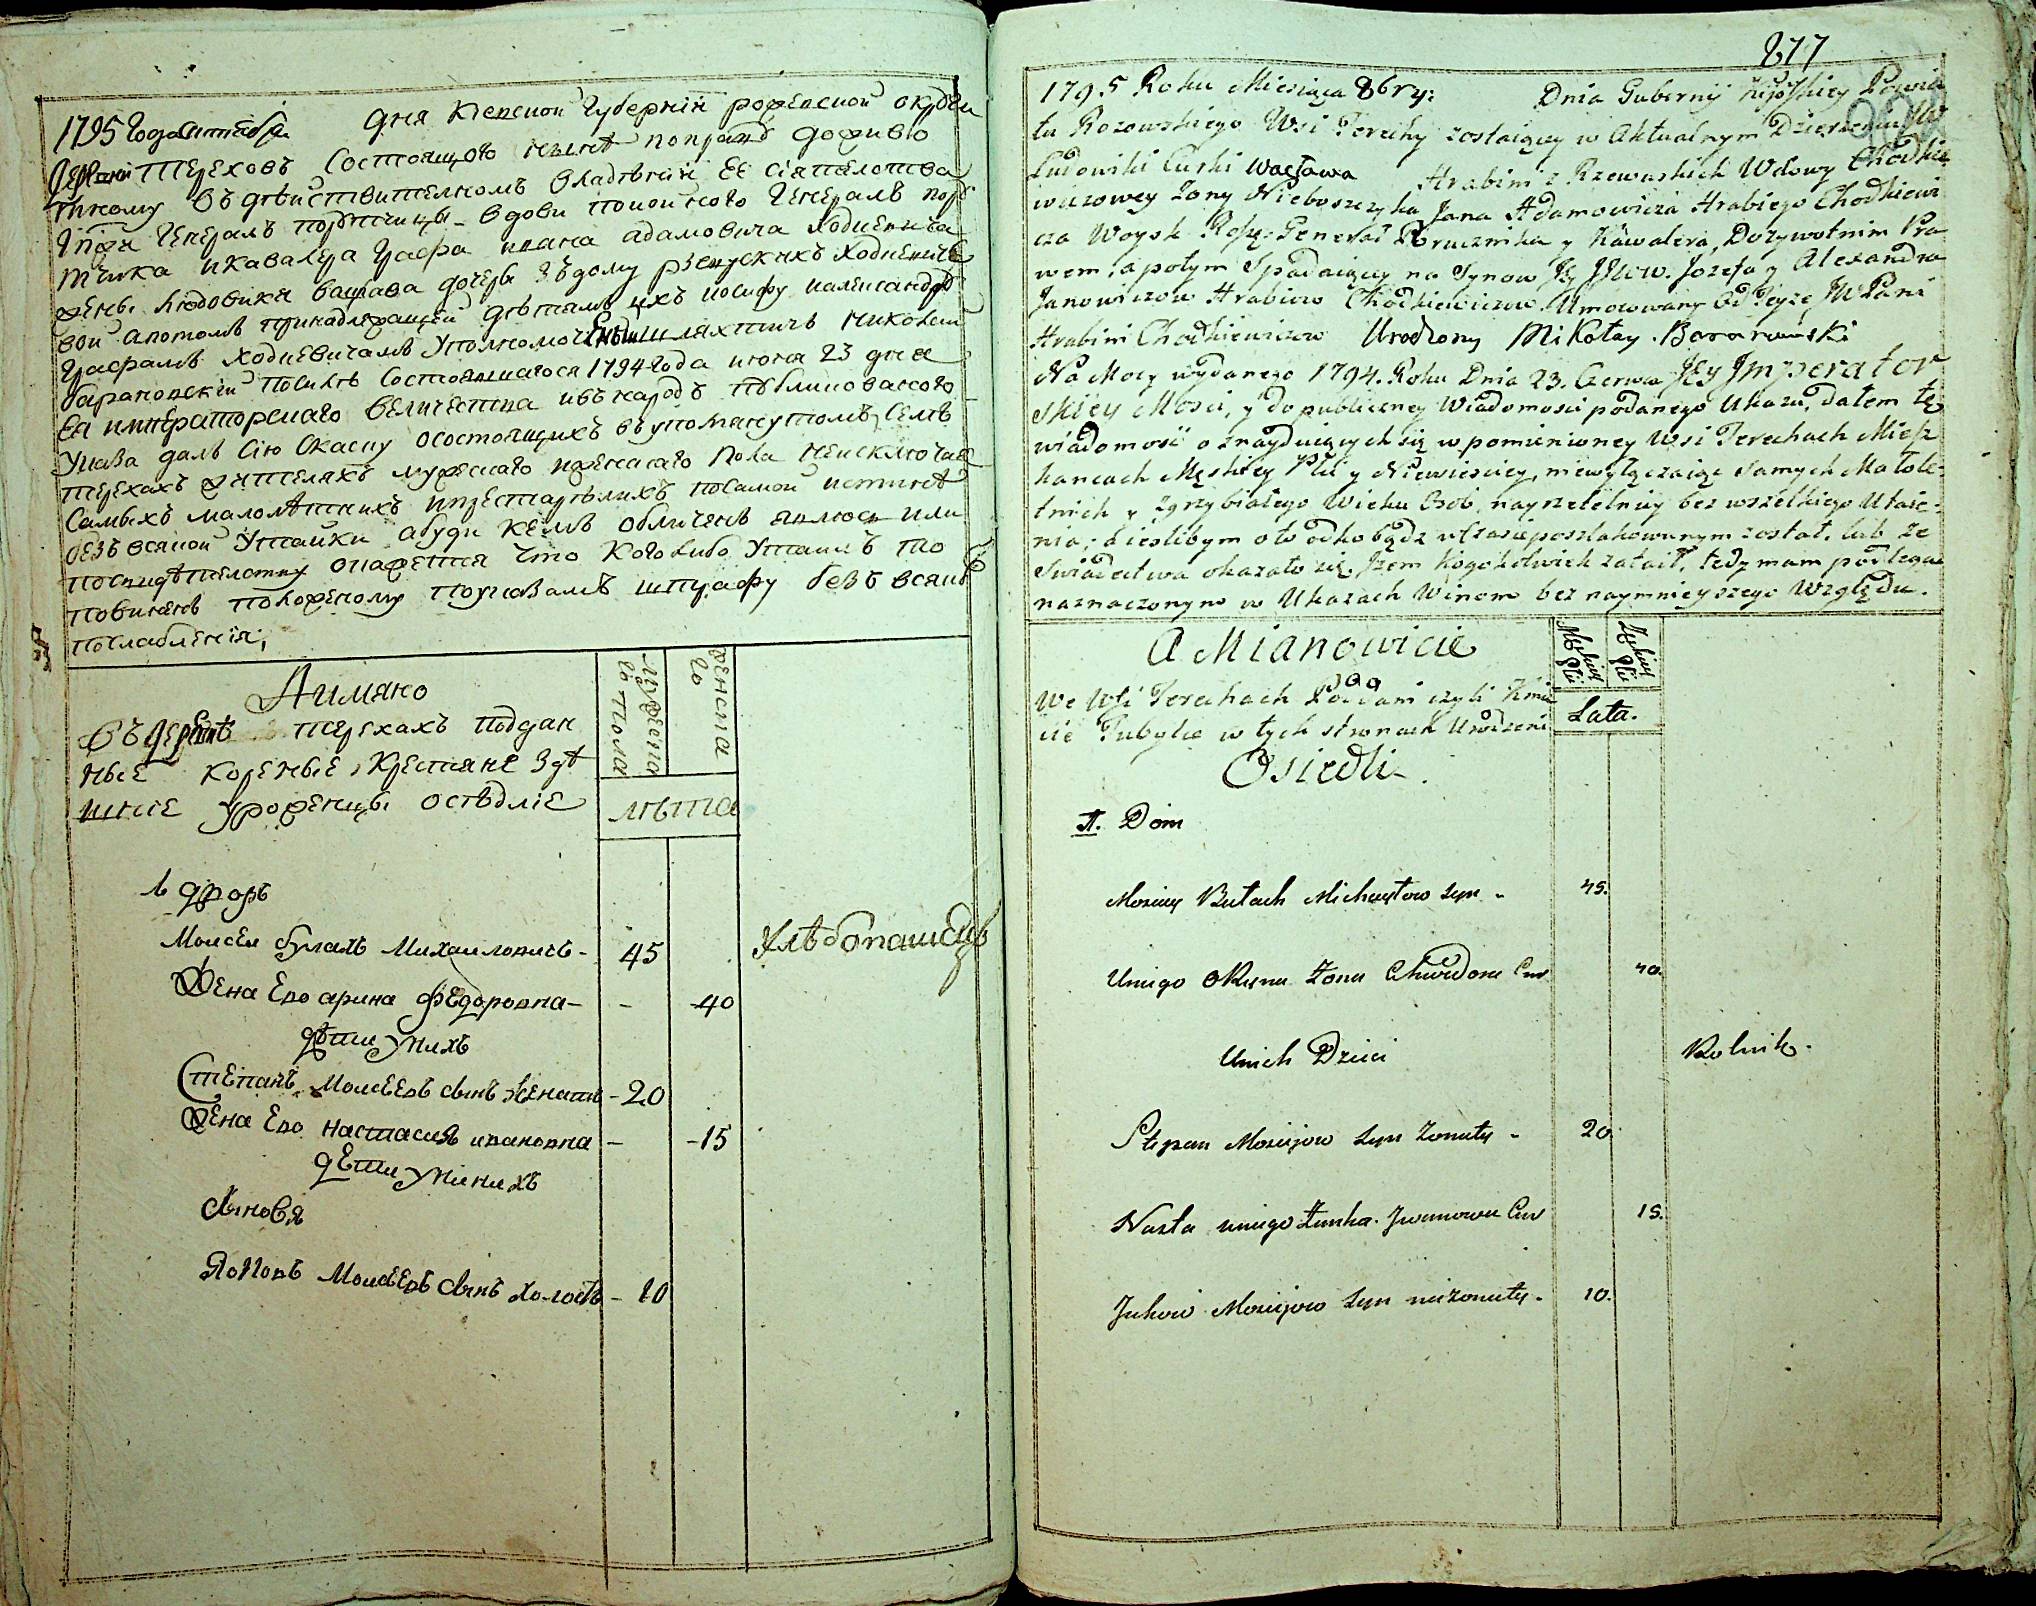 1795 года октября дня Киевской Губернiи рожевской округи
деревни Тереховъ состоящого ныне поправѣ доживо
тному въ дѣйствителномъ владѣнiи Ее сiятелства
Генералъ порутчицы вдови покойного Генералъ пору
тчика икавалера Графа ивана адамовича Ходкевича
жены Людовики вацлава дочери зъдому ржевускихъ Ходкевиче
вой апотомъ принадлежащей дѣтямъ ихъ иосифу иалександру
Графамъ Ходкевичамъ Уполномоченный шляхтичъ николай
барановскiй посилѣ Состоявшагося 1794 года июня 23 дня
Ея императорскаго величества ивънародъ публикованного
Указа далъ Сiю Сказку осостоящихъ въупомянутомъ Селѣ
терехахъ жителяхъ мужескаго иженскаго пола неисключая
Самыхъ малолѣтнихъ ипрестарѣлихъ посамой истиннѣ
безъ всякой Утайки абуди кемъ обличенъ явлюсь или
посвидѣтелству окажется что Кого Либо Утаилъ то
повиненъ положеному поуказамъ штрафу безъ всякого
послабленiя,
Аимяно
мужеска
го пола
женска
го
Въ деревнѣ терехахъ поддан
ные кореные Крестяне здѣ
шнiе Уроженцы осѣдлiе
лѣта
1 дворъ
Моисей булахъ Михаиловичъ - 45
Хлѣбопашецъ
Жена Его арина федоровна - - 40
дѣти Унихъ
Степанъ Моисеевъ сынъ женатъ - 20
Жена Его настасия ивановна - - 15
дѣти Унихъ
Сыновя
Яковъ Моисеевъ сынъ холостъ - 10
877
1795 Roku Miesiąca 8bry: Dnia Gubernij Kijowskiey Powia
tu Rozowskiego Wsi Terechy zostaiącey w Aktualnym Dzierzeniu JW
Ludowiki Curki Wacława Hrabini z Rzewuskich Wdowy Chodkie
wiczowey Zony Nieboszczyka Jana Adamowicza Hrabiego Chodkiewi
cza Woysk Rosy: Generał Porucznika y Kawalera, Dozywotnim Pra
wem, a potym Spadaiącey na Synow Jey JJWW. Jozefa y Alexandra
Janowiczow Hrabiow Chodkiewiczow Umocowany Od Teyże JWPani
Hrabini Chodkiewiczow Urodzony Mikołay Baranowski
Na Mocy wydanego 1794. Roku Dnia 23. Czerwca Jey Imperator
skiey Mosci, y do publiczney Wiadomosci podanego Ukazu, dałem tę
wiadomość o znayduiących się w pomienioney Wsi Terechach Miesz
kancach Męskiey Płci y Niewiesciey, niewyłączaiąc samych Małole
tnich y Zgrzybiałego Wieku Osob, nayrzetelniey bez wszelkiego Utaie
nia; a iesłibym oto odkogobądz wCzasie poszlakowanym został, lub ze
Swiadectwa okazało się, Jżem Kogokolwiek zataił, tedy mam podlegac
naznaczonym w Ukazach Winom bez naymnieyszego Względu.
A Mianowicie
Męskiey
Płci
Żeńskiey
Płci
We Wsi Terechach Poddani czyli Kmie
cie Tubylce w tych stronach Urodzeni
Lata.
Osiedli
1. Dom
Mosiey Bułach Michayłow syn - 45.
Uniego Oryna Zona Chwedora Cur 40.
Unich Dzieci
Rolnik.
Stepan Mosiejow syn Zonaty - 20
Nasta uniego Zonka Jwanowa Cur 15.
Jakow Mosiejow syn niezonaty - 10.